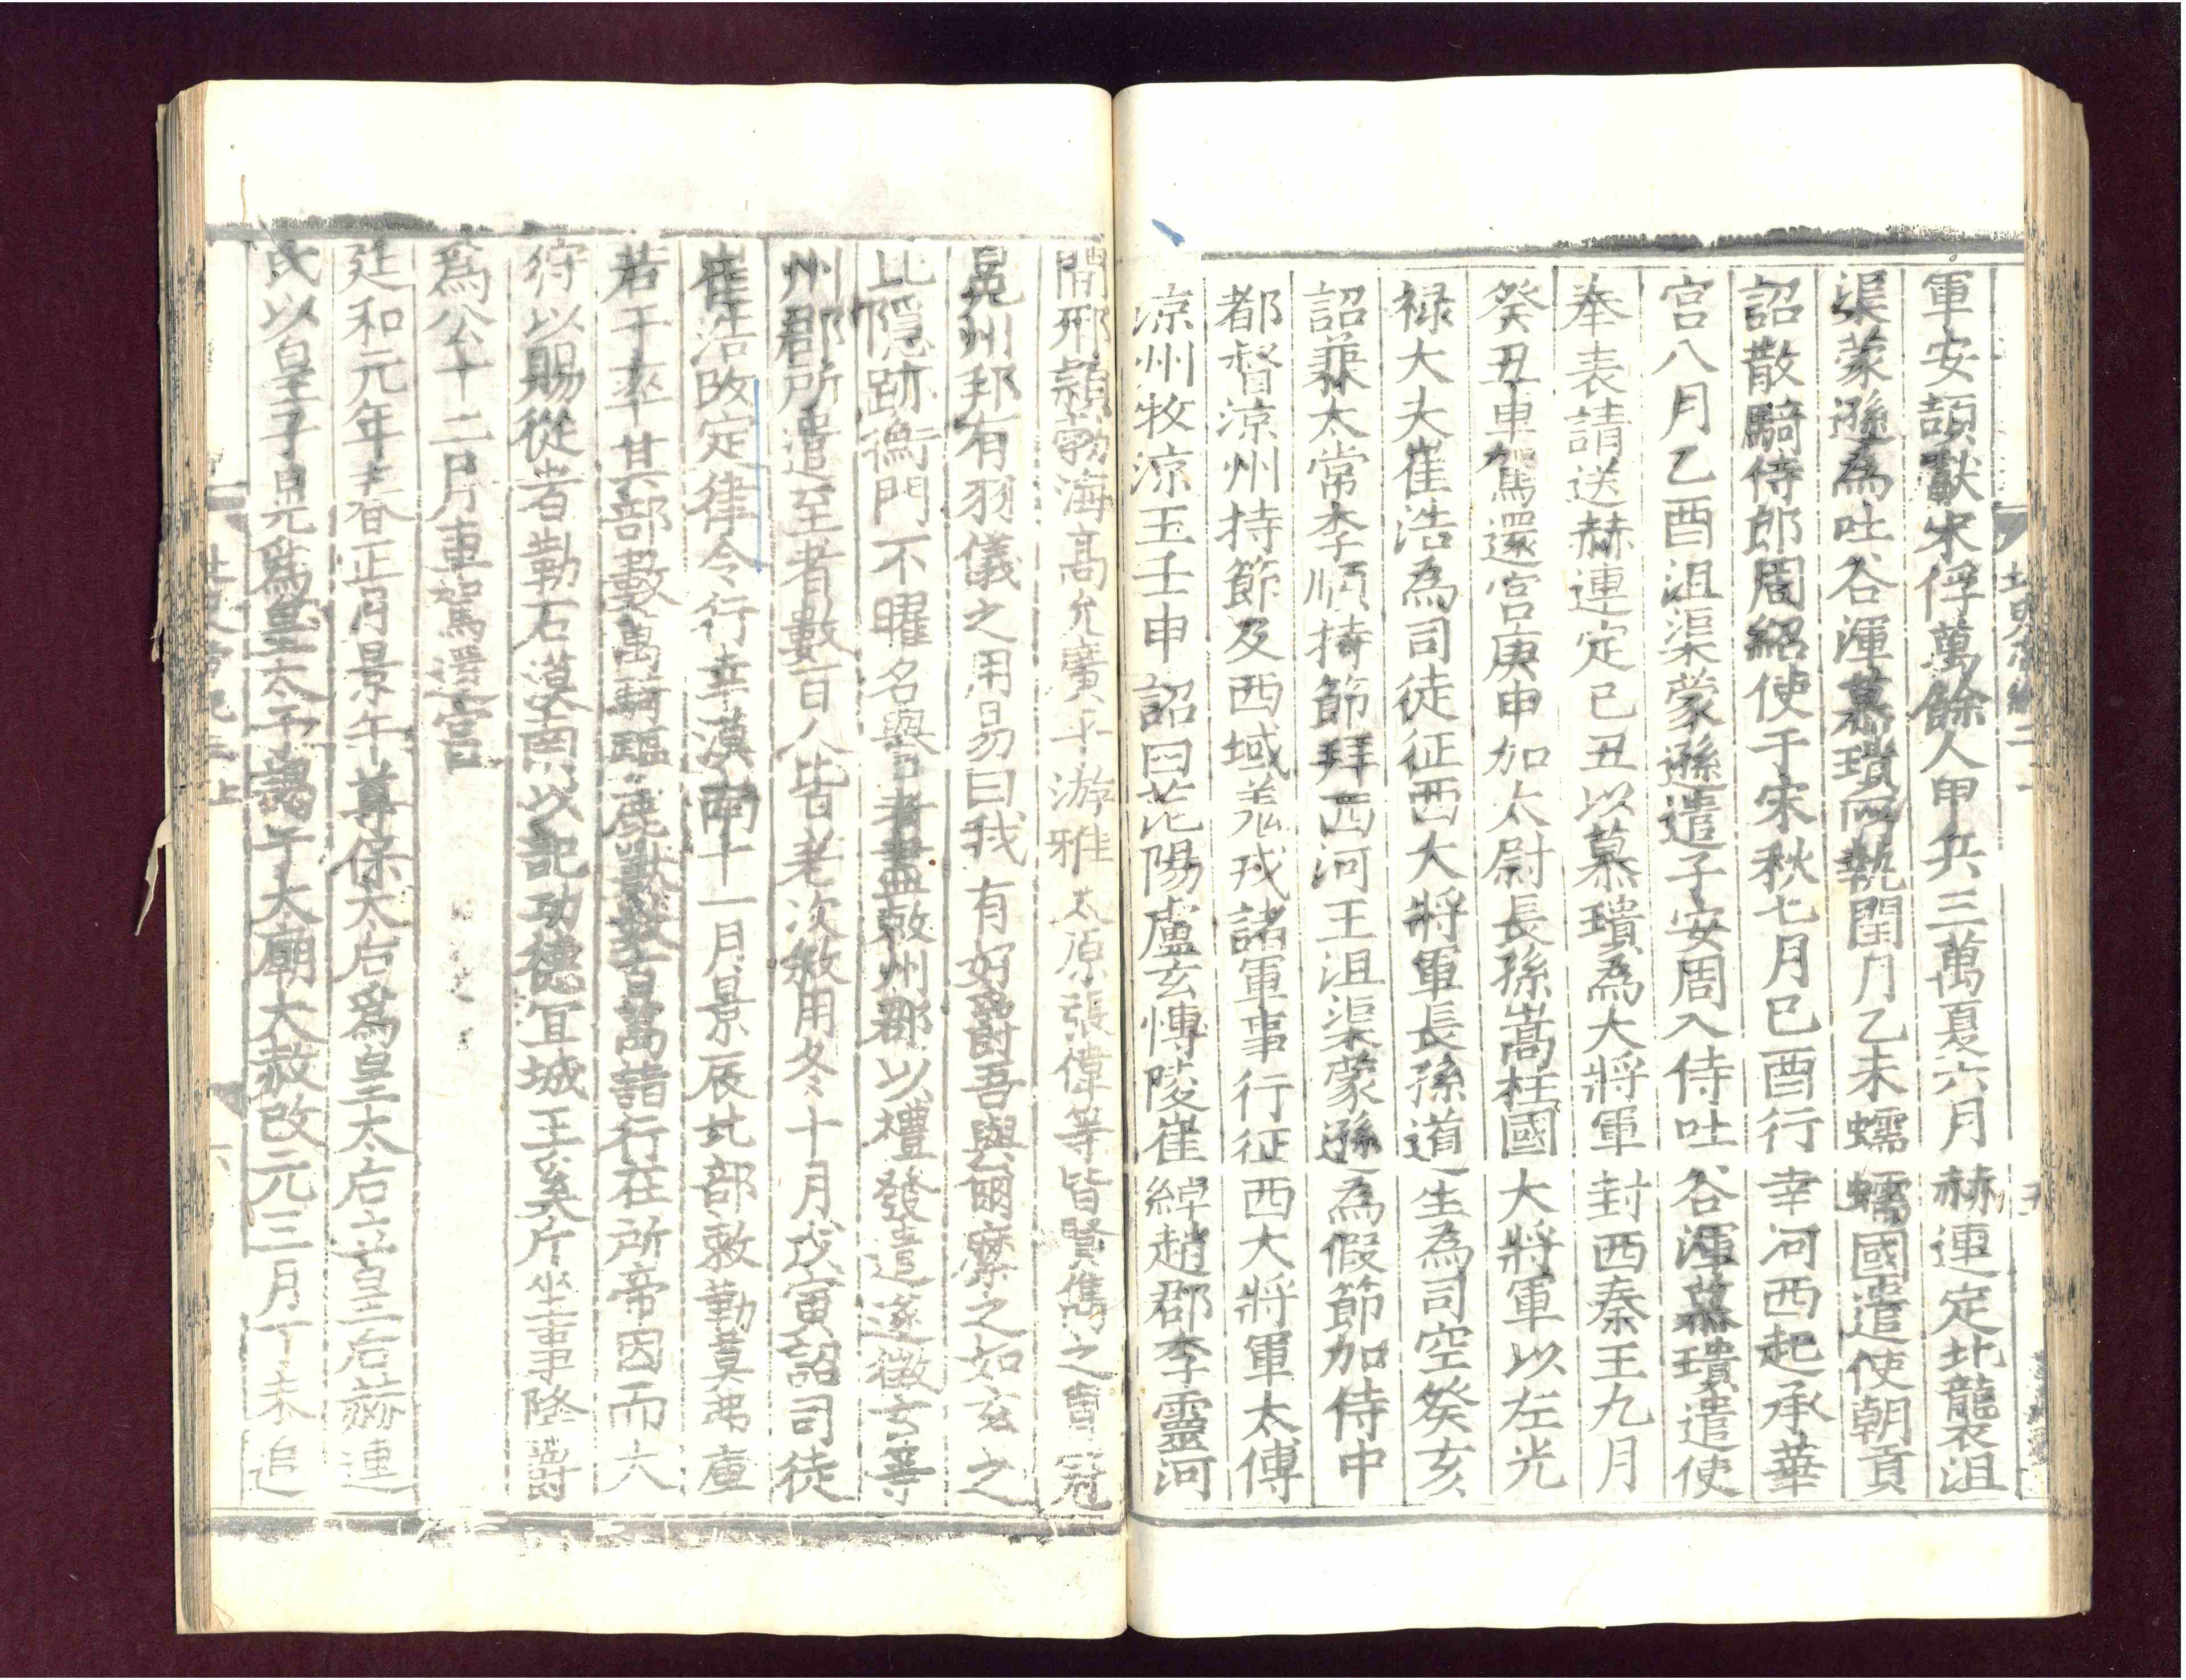 軍安頡獻宋俘萬餘人甲兵三萬夏六月赫連定北襲沮
渠蒙遜為吐谷渾慕璝所執閏月乙未蠕蠕國遣使朝貢
詔散騎侍郎周紹使于宋秋七月己酉行幸河西起承華
宮八月乙酉沮渠蒙遜遣子安周入侍吐谷渾慕璝遣使
奉表請送赫連定己丑以慕璝為大將軍封西秦王九月
癸丑車駕還宮庚申加太尉長孫嵩柱國大將軍以左光
禄大夫崔浩為司徒征西大將軍長孫道生為司空癸亥
詔兼太常李順持節拜西河王沮渠蒙遜為假節加侍中
都督涼州持節及西域羌戎諸軍事行征西大將軍太傅
涼州牧涼王壬申詔曰范陽盧玄博陵崔綽趙郡李靈河
間邢潁勃海高允廣平游雅太原張偉等皆賢雋之胄冠
冕州邦有羽儀之用易曰我有好爵吾與爾縻之如玄之
比隱跡衡門不曜名譽者盡敕州郡以禮發遣遂徵玄等
州郡所遣至者數百人皆差次敘用冬十月戊寅詔司徒
崔浩改定律令行幸漠南十一月景辰北部敕勒莫弗庫
若干率其部數萬騎驅鹿獸數百萬詣行在所帝因而大
狩以賜從者勒石漠南以記功德宜城王奚斤坐事降爵
為公十二月車駕還宮
延和元年春正月景午尊保太后為皇太后立皇后赫連
氏以皇子晃為皇太子謁于太廟大赦改元三月丁未追